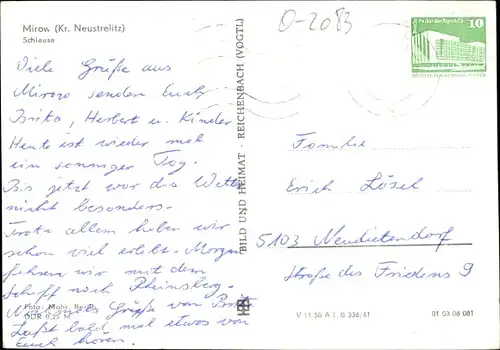 Mirow (Kr. Neustrelitz)
Schleuse
O-2083
10
Viele Grüße aus
Mirow senden Euch
Britta, Herbert u. Kinder
Heute ist wieder mal
ein sonniger Tag.
Bis jetzt war das Wetter
nicht besonders.
Trotz allem haben wir
schon viel erlebt. Morgen
fahren wir mit dem
Schiff nach Rheinsberg.
Grüße von
Laßt bald mal etwas von
Euch hören.
Foto: Mohr, Berlin
DDR 0,25 M
BILD UND HEIMAT · REICHENBACH (VOGTL)
Familie
Erich Lösel
5103 Neudietendorf
Straße des Friedens 9
V 11 50 A 1 B 336/81
01 03 06 081